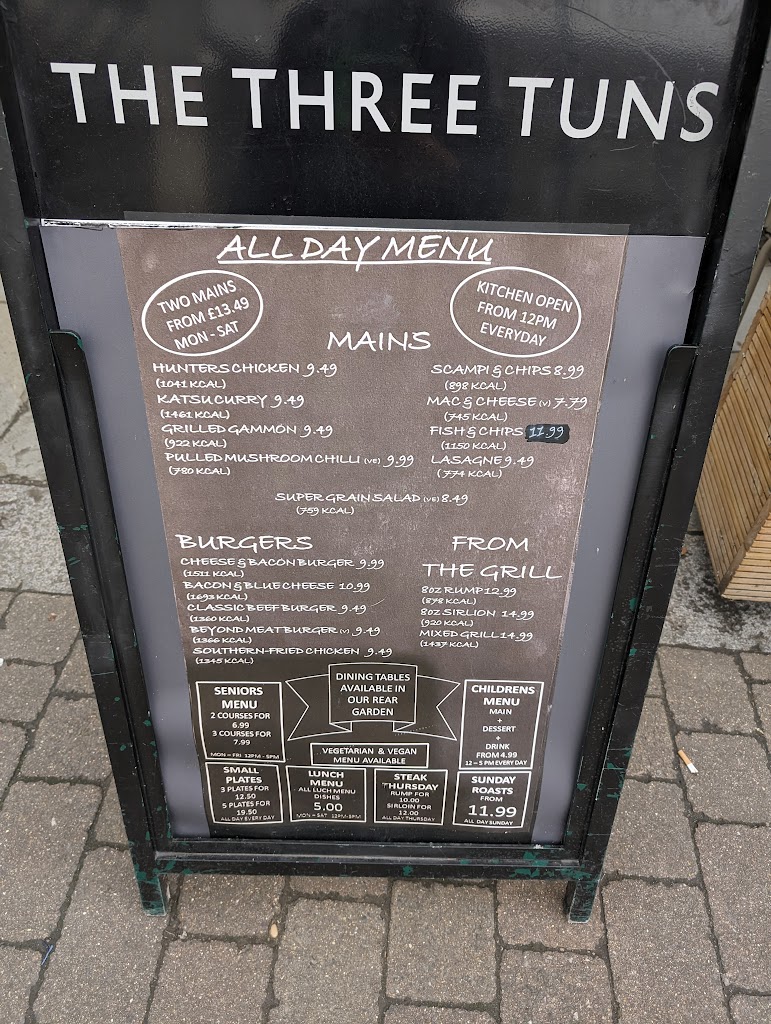 THE THREE TUNS
ALL DAY MENU
TWO MAINS
FROM £13.49
MON - SAT
KITCHEN OPEN
FROM 12PM
EVERYDAY
MAINS
HUNTERS CHICKEN 9.49
(1041 KCAL)
KATSU CURRY 9.49
(1461 KCAL)
GRILLED GAMMON 9.49
(922 KCAL)
PULLED MUSHROOM CHILLI (VE) 9.99
(780 KCAL)
SCAMPI & CHIPS 8.99
(898 KCAL)
MAC & CHEESE (V) 7.79
(745 KCAL)
FISH & CHIPS 11.99
(1150 KCAL)
LASAGNE 9.49
(774 KCAL)
SUPER GRAIN SALAD (VE) 8.49
(759 KCAL)
BURGERS
CHEESE & BACON BURGER 9.99
(1511 KCAL)
BACON & BLUE CHEESE 10.99
(1693 KCAL)
CLASSIC BEEF BURGER 9.49
(1360 KCAL)
BEYOND MEAT BURGER (V) 9.49
(1366 KCAL)
SOUTHERN-FRIED CHICKEN 9.49
(1345 KCAL)
FROM
THE GRILL
8OZ RUMP 12.99
(878 KCAL)
8OZ SIRLION 14.99
(920 KCAL)
MIXED GRILL 14.99
(1437 KCAL)
SENIORS
MENU
2 COURSES FOR
6.99
3 COURSES FOR
7.99
MON – FRI 12PM - 5PM
DINING TABLES
AVAILABLE IN
OUR REAR
GARDEN
VEGETARIAN & VEGAN
MENU AVAILABLE
CHILDRENS
MENU
MAIN
+
DESSERT
+
DRINK
FROM 4.99
12 – 5 PM EVERY DAY
SMALL
PLATES
3 PLATES FOR
12.50
5 PLATES FOR
19.50
ALL DAY EVERY DAY
LUNCH
MENU
ALL LUCH MENU
DISHES
5.00
MON – SAT 12PM-5PM
STEAK
THURSDAY
RUMP FOR
10.00
SIRLOIN FOR
12.00
ALL DAY THURSDAY
SUNDAY
ROASTS
FROM
11.99
ALL DAY SUNDAY